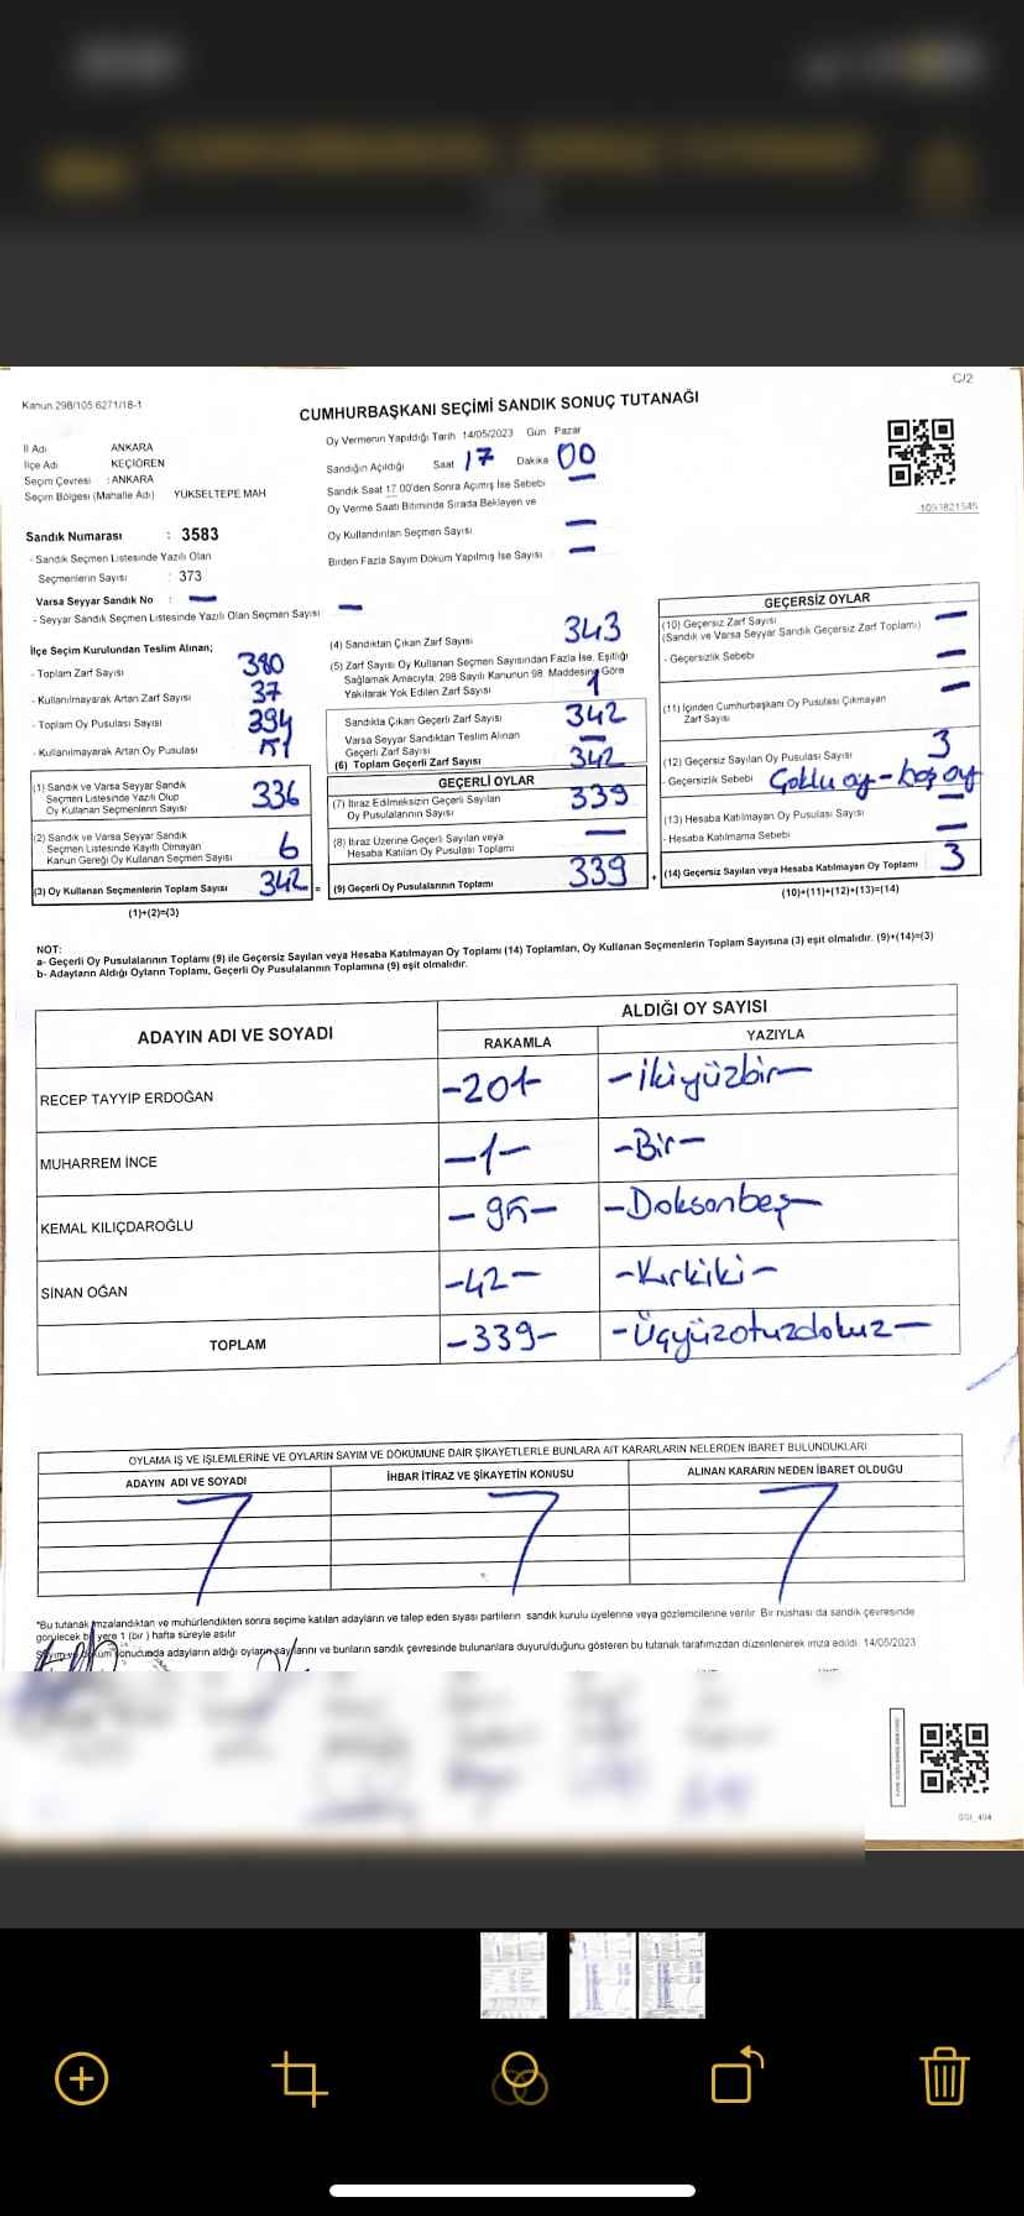 C/2
Kanun 298/105 6271/18-1
CUMHURBAŞKANI SEÇİMİ SANDIK SONUÇ TUTANAĞI
İl Adı ANKARA
İlçe Adı KEÇİÖREN
Seçim Çevresi : ANKARA
Seçim Bölgesi (Mahalle Adı) YÜKSELTEPE MAH
Sandık Numarası : 3583
- Sandık Seçmen Listesinde Yazılı Olan
Seçmenlerin Sayısı : 373
Varsa Seyyar Sandık No : —
- Seyyar Sandık Seçmen Listesinde Yazılı Olan Seçmen Sayısı —
Oy Vermenin Yapıldığı Tarih 14/05/2023 Gün Pazar
Sandığın Açıldığı Saat 17 Dakika 00
Sandık Saat 17 00'den Sonra Açımış İse Sebebi —
Oy Verme Saati Bitiminde Sırada Bekleyen ve
Oy Kullandırılan Seçmen Sayısı —
Birden Fazla Sayım Döküm Yapılmış İse Sayısı —
1093821545
İlçe Seçim Kurulundan Teslim Alınan;
- Toplam Zarf Sayısı 380
- Kullanılmayarak Artan Zarf Sayısı 37
- Toplam Oy Pusulası Sayısı 394
- Kullanılmayarak Artan Oy Pusulası 51
(1) Sandık ve Varsa Seyyar Sandık
Seçmen Listesinde Yazılı Olup
Oy Kullanan Seçmenlerin Sayısı 336
(2) Sandık ve Varsa Seyyar Sandık
Seçmen Listesinde Kayıtlı Olmayan
Kanun Gereği Oy Kullanan Seçmen Sayısı 6
(3) Oy Kullanan Seçmenlerin Toplam Sayısı 342 =
(1)+(2)=(3)
(4) Sandıktan Çıkan Zarf Sayısı 343
(5) Zarf Sayısı Oy Kullanan Seçmen Sayısından Fazla İse, Eşitliği
Sağlamak Amacıyla, 298 Sayılı Kanunun 98. Maddesine Göre
Yakılarak Yok Edilen Zarf Sayısı 1
Sandıkta Çıkan Geçerli Zarf Sayısı 342
Varsa Seyyar Sandıktan Teslim Alınan
Geçerli Zarf Sayısı —
(6) Toplam Geçerli Zarf Sayısı 342
GEÇERLİ OYLAR
(7) İtiraz Edilmeksizin Geçerli Sayılan
Oy Pusulalarının Sayısı 339
(8) İtiraz Üzerine Geçerli Sayılan veya
Hesaba Katılan Oy Pusulası Toplamı —
(9) Geçerli Oy Pusulalarının Toplamı 339 +
GEÇERSİZ OYLAR
(10) Geçersiz Zarf Sayısı —
(Sandık ve Varsa Seyyar Sandık Geçersiz Zarf Toplamı)
- Geçersizlik Sebebi —
(11) İçinden Cumhurbaşkanı Oy Pusulası Çıkmayan —
Zarf Sayısı
(12) Geçersiz Sayılan Oy Pusulası Sayısı 3
- Geçersizlik Sebebi Çoklu oy - boş oy
(13) Hesaba Katılmayan Oy Pusulası Sayısı —
- Hesaba Katılmama Sebebi —
(14) Geçersiz Sayılan veya Hesaba Katılmayan Oy Toplamı 3
(10)+(11)+(12)+(13)=(14)
NOT:
a- Geçerli Oy Pusulalarının Toplamı (9) ile Geçersiz Sayılan veya Hesaba Katılmayan Oy Toplamı (14) Toplamları, Oy Kullanan Seçmenlerin Toplam Sayısına (3) eşit olmalıdır. (9)+(14)=(3)
b- Adayların Aldığı Oyların Toplamı, Geçerli Oy Pusulalarının Toplamına (9) eşit olmalıdır.
ADAYIN ADI VE SOYADI ALDIĞI OY SAYISI
RAKAMLA YAZIYLA
RECEP TAYYİP ERDOĞAN -201- -İkiyüzbir-
MUHARREM İNCE -1- -Bir-
KEMAL KILIÇDAROĞLU -95- -Doksanbeş-
SİNAN OĞAN -42- -Kırkiki-
TOPLAM -339- -Üçyüzotuzdokuz-
OYLAMA İŞ VE İŞLEMLERİNE VE OYLARIN SAYIM VE DÖKÜMÜNE DAİR ŞİKAYETLERLE BUNLARA AİT KARARLARIN NELERDEN İBARET BULUNDUKLARI
ADAYIN ADI VE SOYADI İHBAR İTİRAZ VE ŞİKAYETİN KONUSU ALINAN KARARIN NEDEN İBARET OLDUĞU
*Bu tutanak imzalandıktan ve mühürlendikten sonra seçime katılan adayların ve talep eden siyasi partilerin sandık kurulu üyelerine veya gözlemcilerine verilir. Bir nüshası da sandık çevresinde
görülecek bir yere 1 (bir ) hafta süreyle asılır
Sayım ve döküm sonucunda adayların aldığı oyların sayılarını ve bunların sandık çevresinde bulunanlara duyurulduğunu gösteren bu tutanak tarafımızdan düzenlenerek imza edildi. 14/05/2023